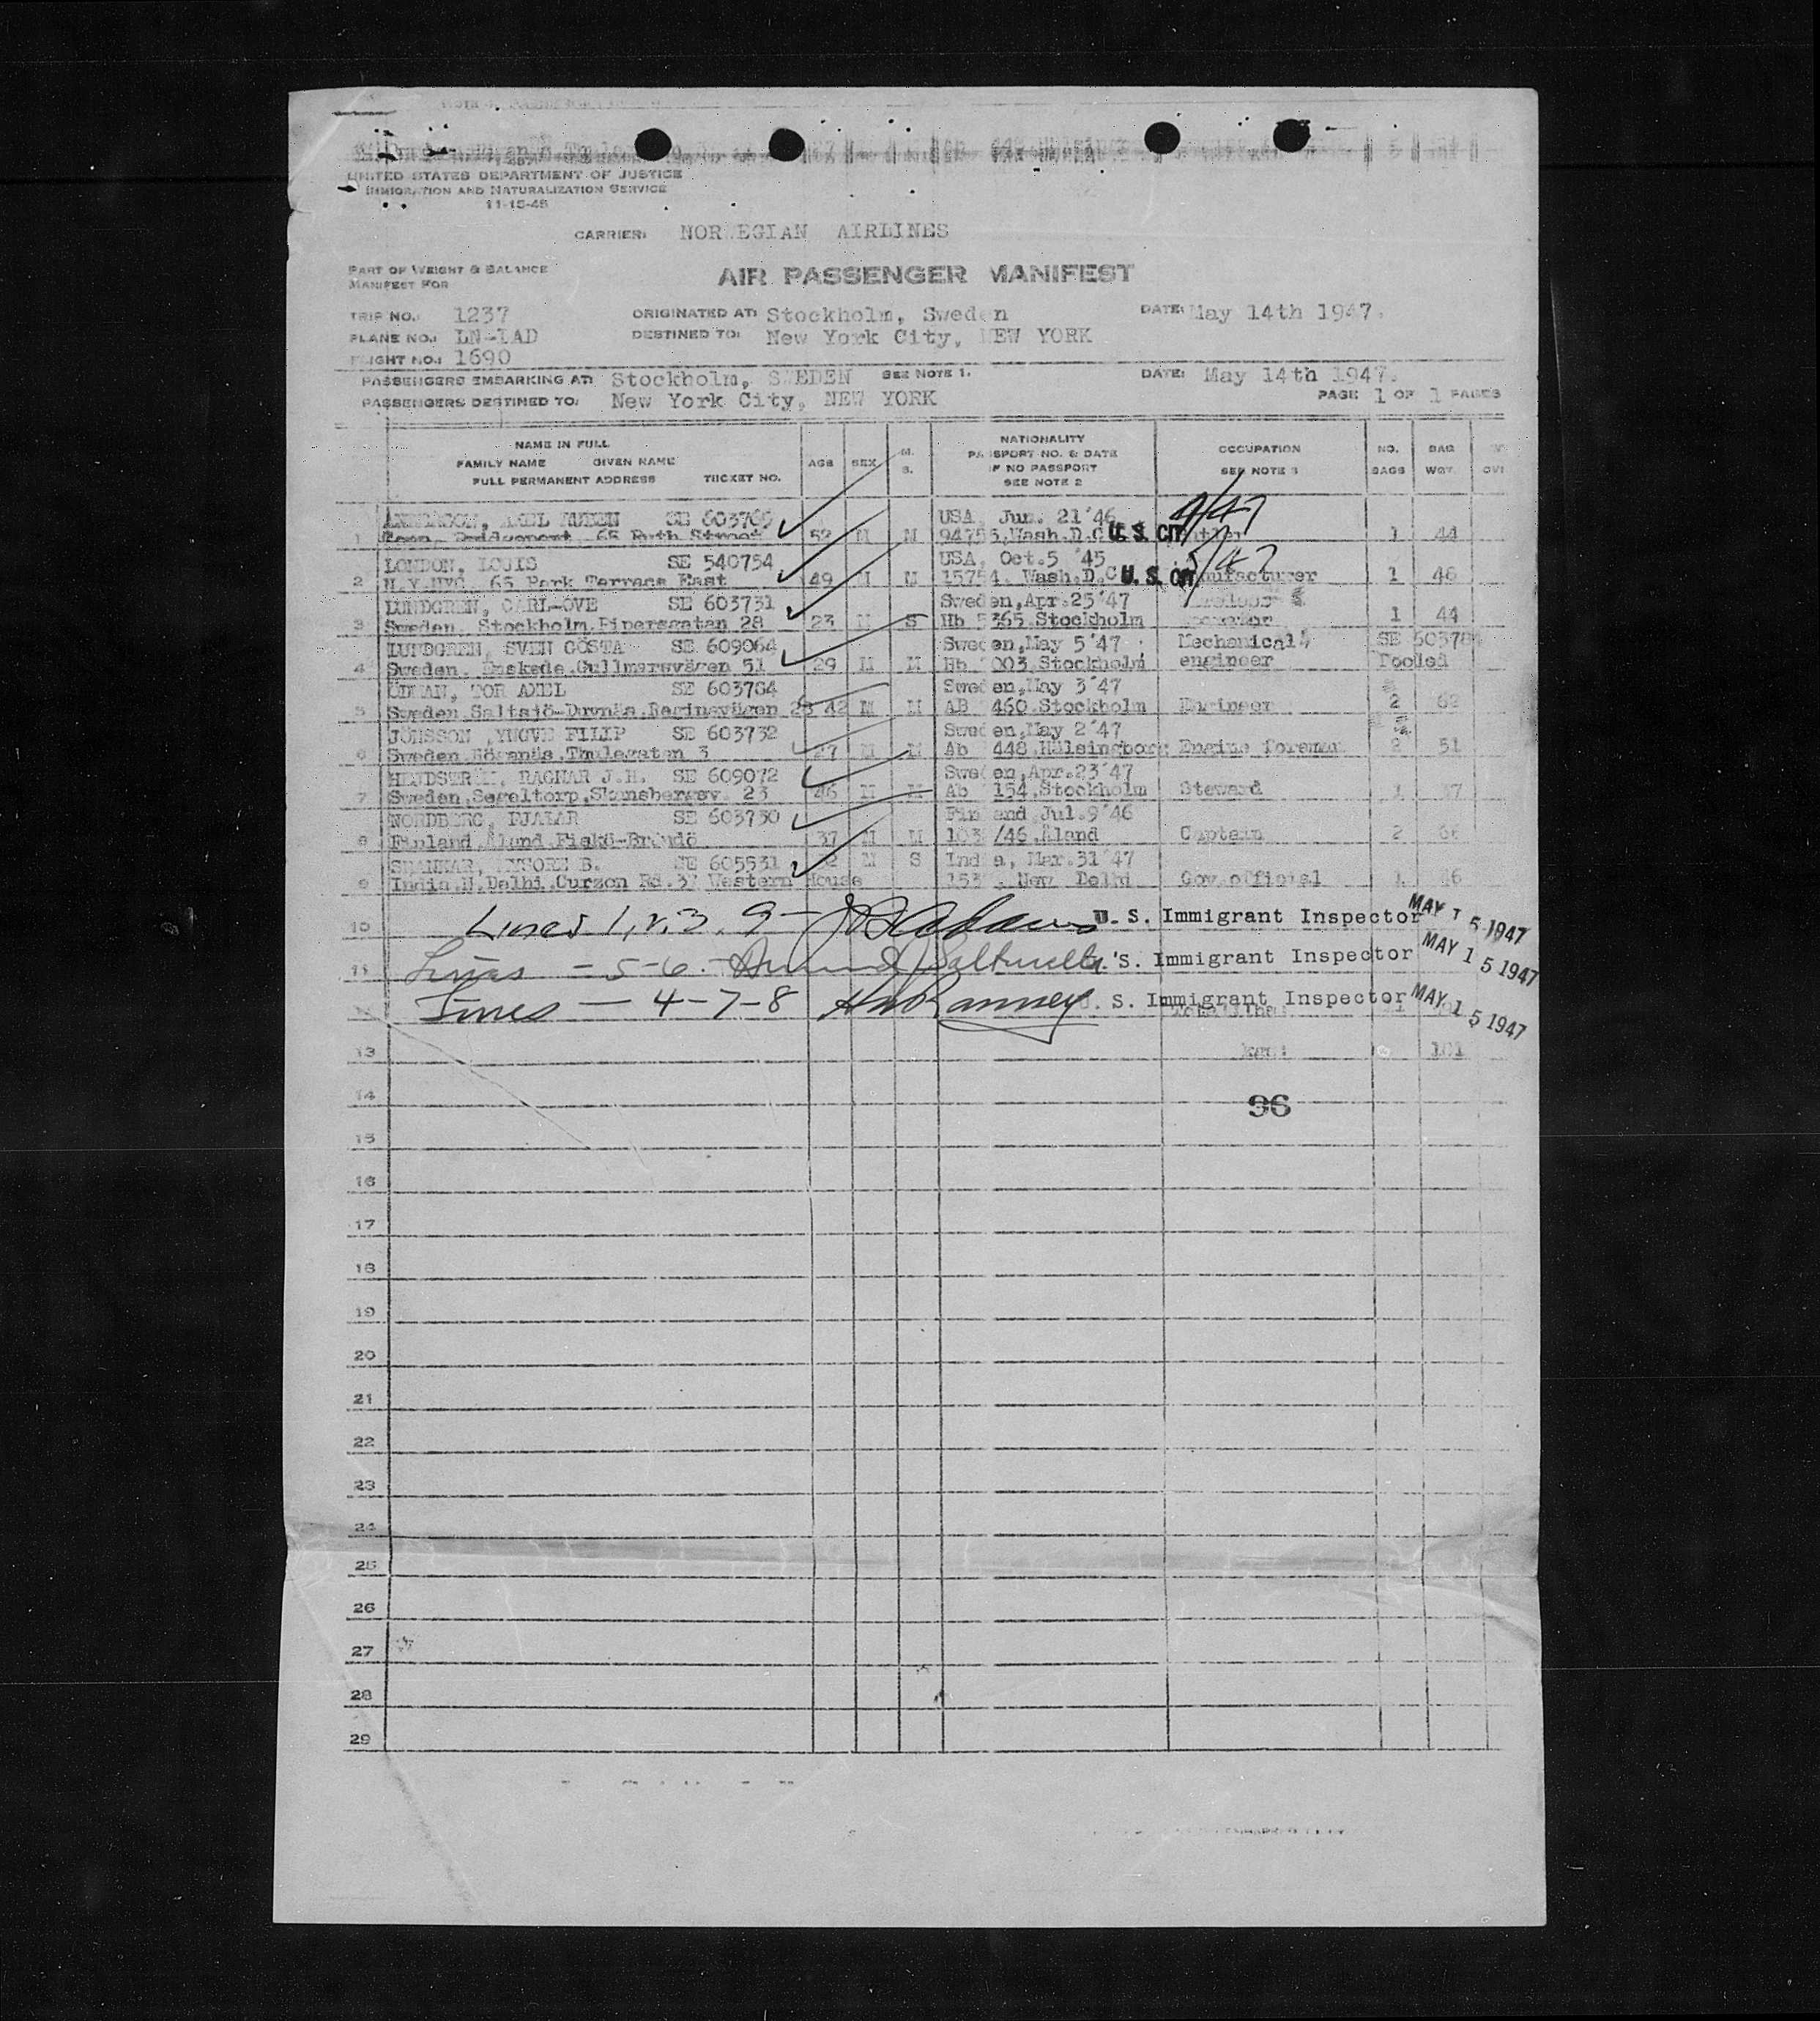 UNITED STATES DEPARTMENT OF JUSTICE
IMMIGRATION AND NATURALIZATION SERVICE
11-15-45
CARRIER: NORWEGIAN AIRLINES
PART OF WEIGHT & BALANCE
MANIFEST FOR
AIR PASSENGER MANIFEST
TRIP NO.: 1237 ORIGINATED AT: Stockholm, Sweden DATE: May 14th 1947.
PLANE NO.: LN-IAD DESTINED TO: New York City, NEW YORK
FLIGHT NO.: 1690
PASSENGERS EMBARKING AT: Stockholm, SWEDEN SEE NOTE 1. DATE: May 14th 1947.
PASSENGERS DESTINED TO: New York City, NEW YORK PAGE 1 OF 1 PAGES
NAME IN FULL
FAMILY NAME GIVEN NAME
FULL PERMANENT ADDRESS TICKET NO.
AGE SEX M. S.
NATIONALITY
PASSPORT NO. & DATE
IF NO PASSPORT
SEE NOTE 2
OCCUPATION
SEE NOTE 3
NO. BAGS
BAG WGT.
SE 603765 USA, Jun. 21'46 4/47
1 Conn. Bridgeport, 65 Ruth Street 52 M M Wash.D.C U.S. CIT 1 44
LONDON, LOUIS SE 540754 USA, Oct.5 '45 5/47
2 N.Y.NYC, 65 Park Terrace East 49 M M 15754, Wash.D.C U.S. CIT Manufacturer 1 46
LUNDGREN, CARL-OVE SE 603731 Sweden,Apr.25'47
3 Sweden, Stockholm,Pipersgatan 28 23 M S Hb 5365 Stockholm 1 44
LUNDGREN, SVEN GÖSTA SE 609064 Sweden,May 5'47 Mechanical SE 603784
4 Sweden, Enskede,Gullmarsvägen 51 29 M M Hb 003 Stockholm engineer Pooled
ÖDMAN, TOR AXEL SE 603784 Sweden,May 3'47
5 Sweden Saltsjö-Duvnäs,Reginavägen 28 42 M M AB 460 Stockholm Engineer 2 62
JÖNSSON ,YNGVE FILIP SE 603732 Sweden,May 2'47
6 Sweden Höganäs,Thulegatan 3 27 M M Ab 448,Hälsingborg Engine foreman 2 51
RAGNAR J.H. SE 609072 Sweden,Apr.23'47
7 Sweden,Segeltorp,Skansbergsv. 23 46 M M Ab 154,Stockholm Steward 1 37
NORDBERG, HJALAR SE 603730 Finland Jul.9'46
8 Finland Åland 37 M M /46,Åland Captain 2
SHANKAR, MYSORE B. SE 605531 M S India, Mar.31'47
9 India N.Delhi Curzon Rd. Western House New Delhi Gov.official 1 46
10 Lines 1, 2, 3, 9 - U. S. Immigrant Inspector MAY 15 1947
11 Lines - 5-6 - U. S. Immigrant Inspector MAY 15 1947
12 Lines - 4-7-8 U. S. Immigrant Inspector MAY 15 1947
13 101
96
14
15
16
17
18
19
20
21
22
23
24
25
26
27
28
29